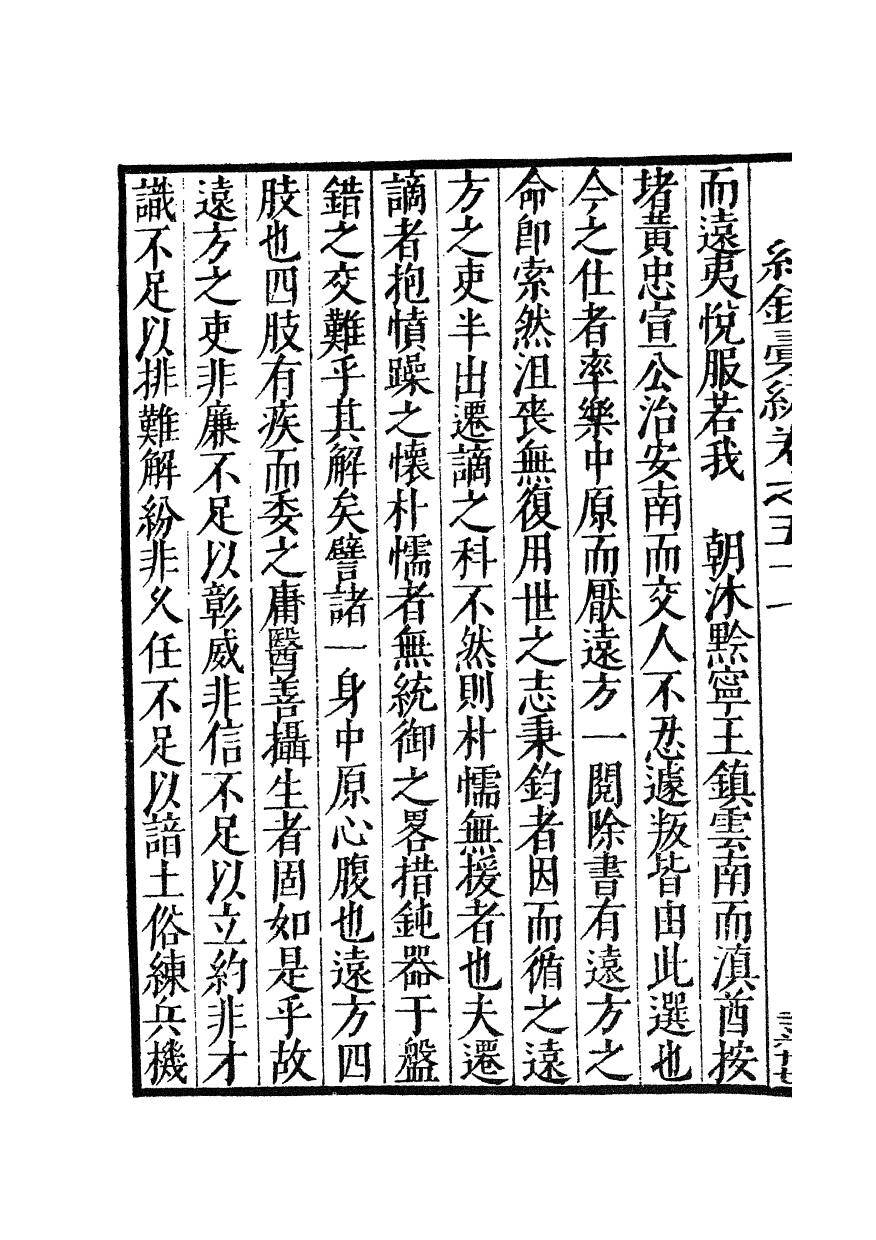 卷之五十一
而遠夷悅服若我　朝沐黔寧王鎮雲南而滇酋按
堵黃忠宣公治安南而交人不忍遽叛皆由此選也
今之仕者率樂中原而厭遠方一閱除書有遠方之
命卽索然沮喪無復用世之志秉鈞者因而循之遠
方之吏半出遷謫之科不然則朴懦無援者也夫遷
謫者抱憤躁之懷朴懦者無統御之畧措鈍器于盤
錯之交難乎其解矣譬諸一身中原心腹也遠方四
肢也四肢有疾而委之庸醫善攝生者固如是乎故
遠方之吏非廉不足以彰威非信不足以立約非才
識不足以排難解紛非久任不足以諳土俗練兵機